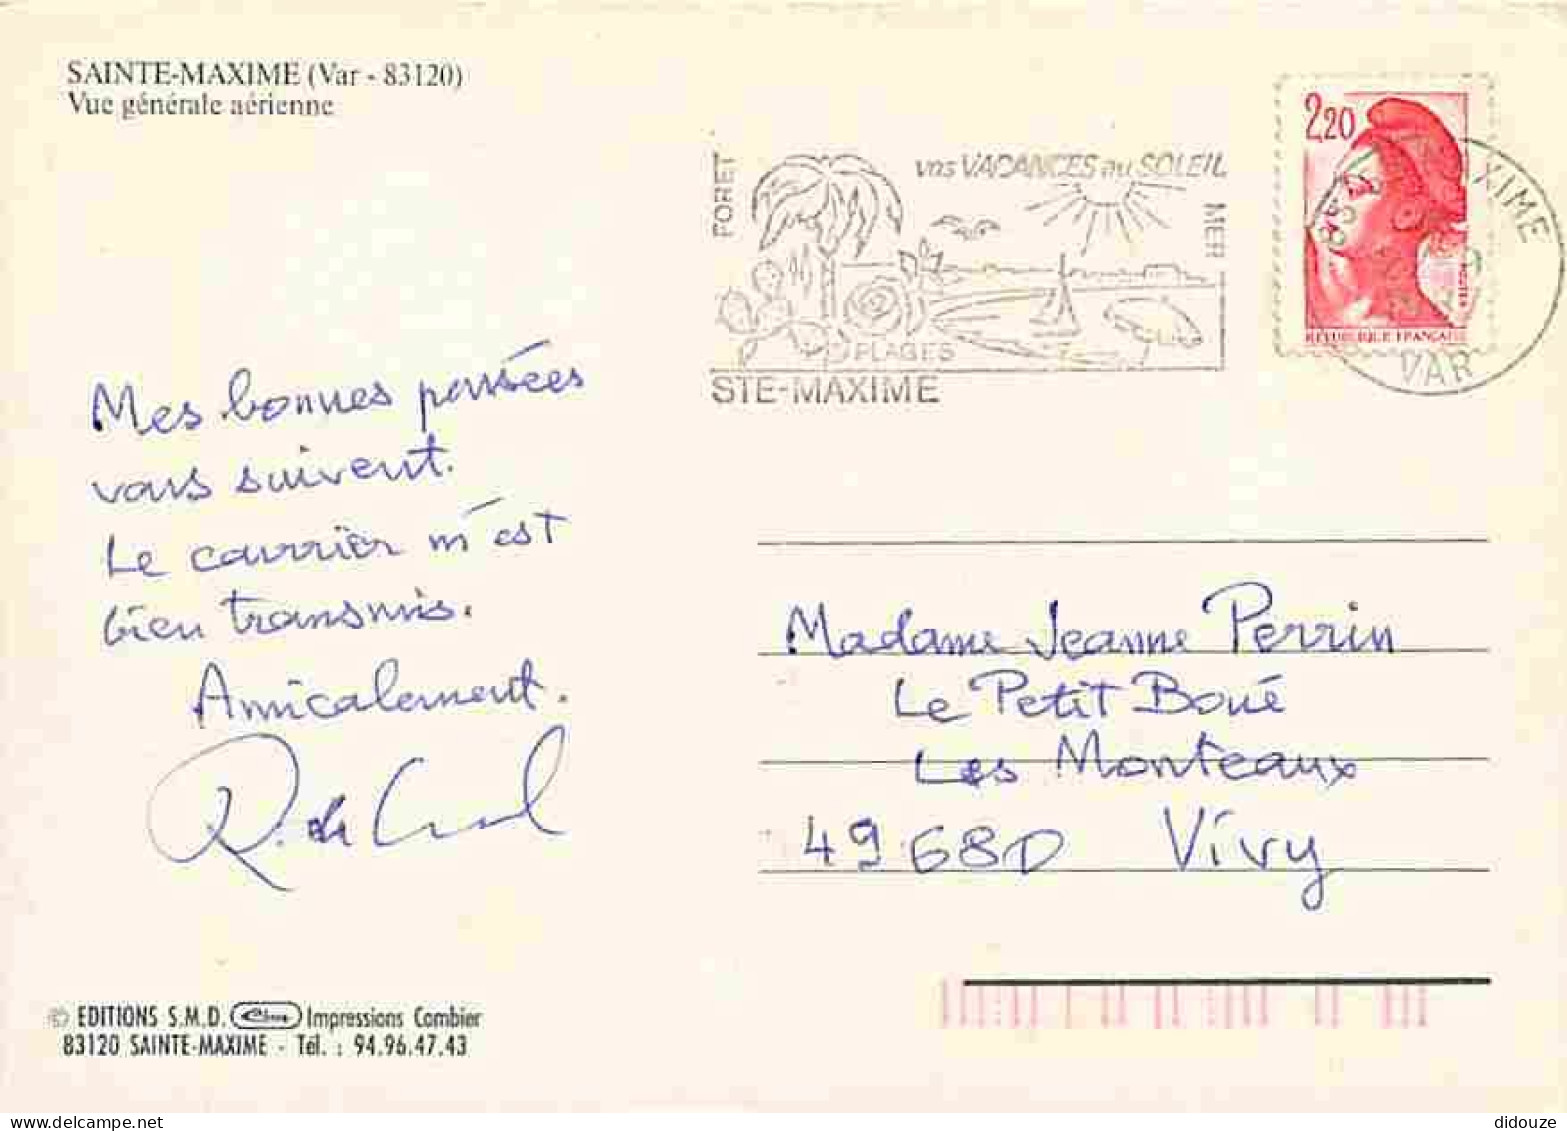 SAINTE-MAXIME (Var - 83120)
Vue générale aérienne
FORET
vos VACANCES au SOLEIL
MER
PLAGES
STE-MAXIME
2,20
REPUBLIQUE FRANÇAISE
83
XIME
VAR
Mes bonnes pensées
vous suivent.
Le courrier m'est
bien transmis.
Amicalement.
R. de
Madame Jeanne Perrin
Le Petit Boué
Les Monteaux
49680 Vivy
© EDITIONS S.M.D. Impressions Combier
83120 SAINTE-MAXIME - Tél. : 94.96.47.43
didouze